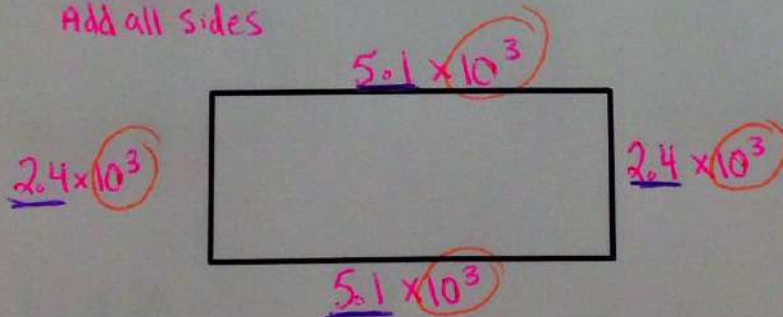 Add all sides
5.1 × 10³
2.4 × 10³
2.4 × 10³
5.1 × 10³